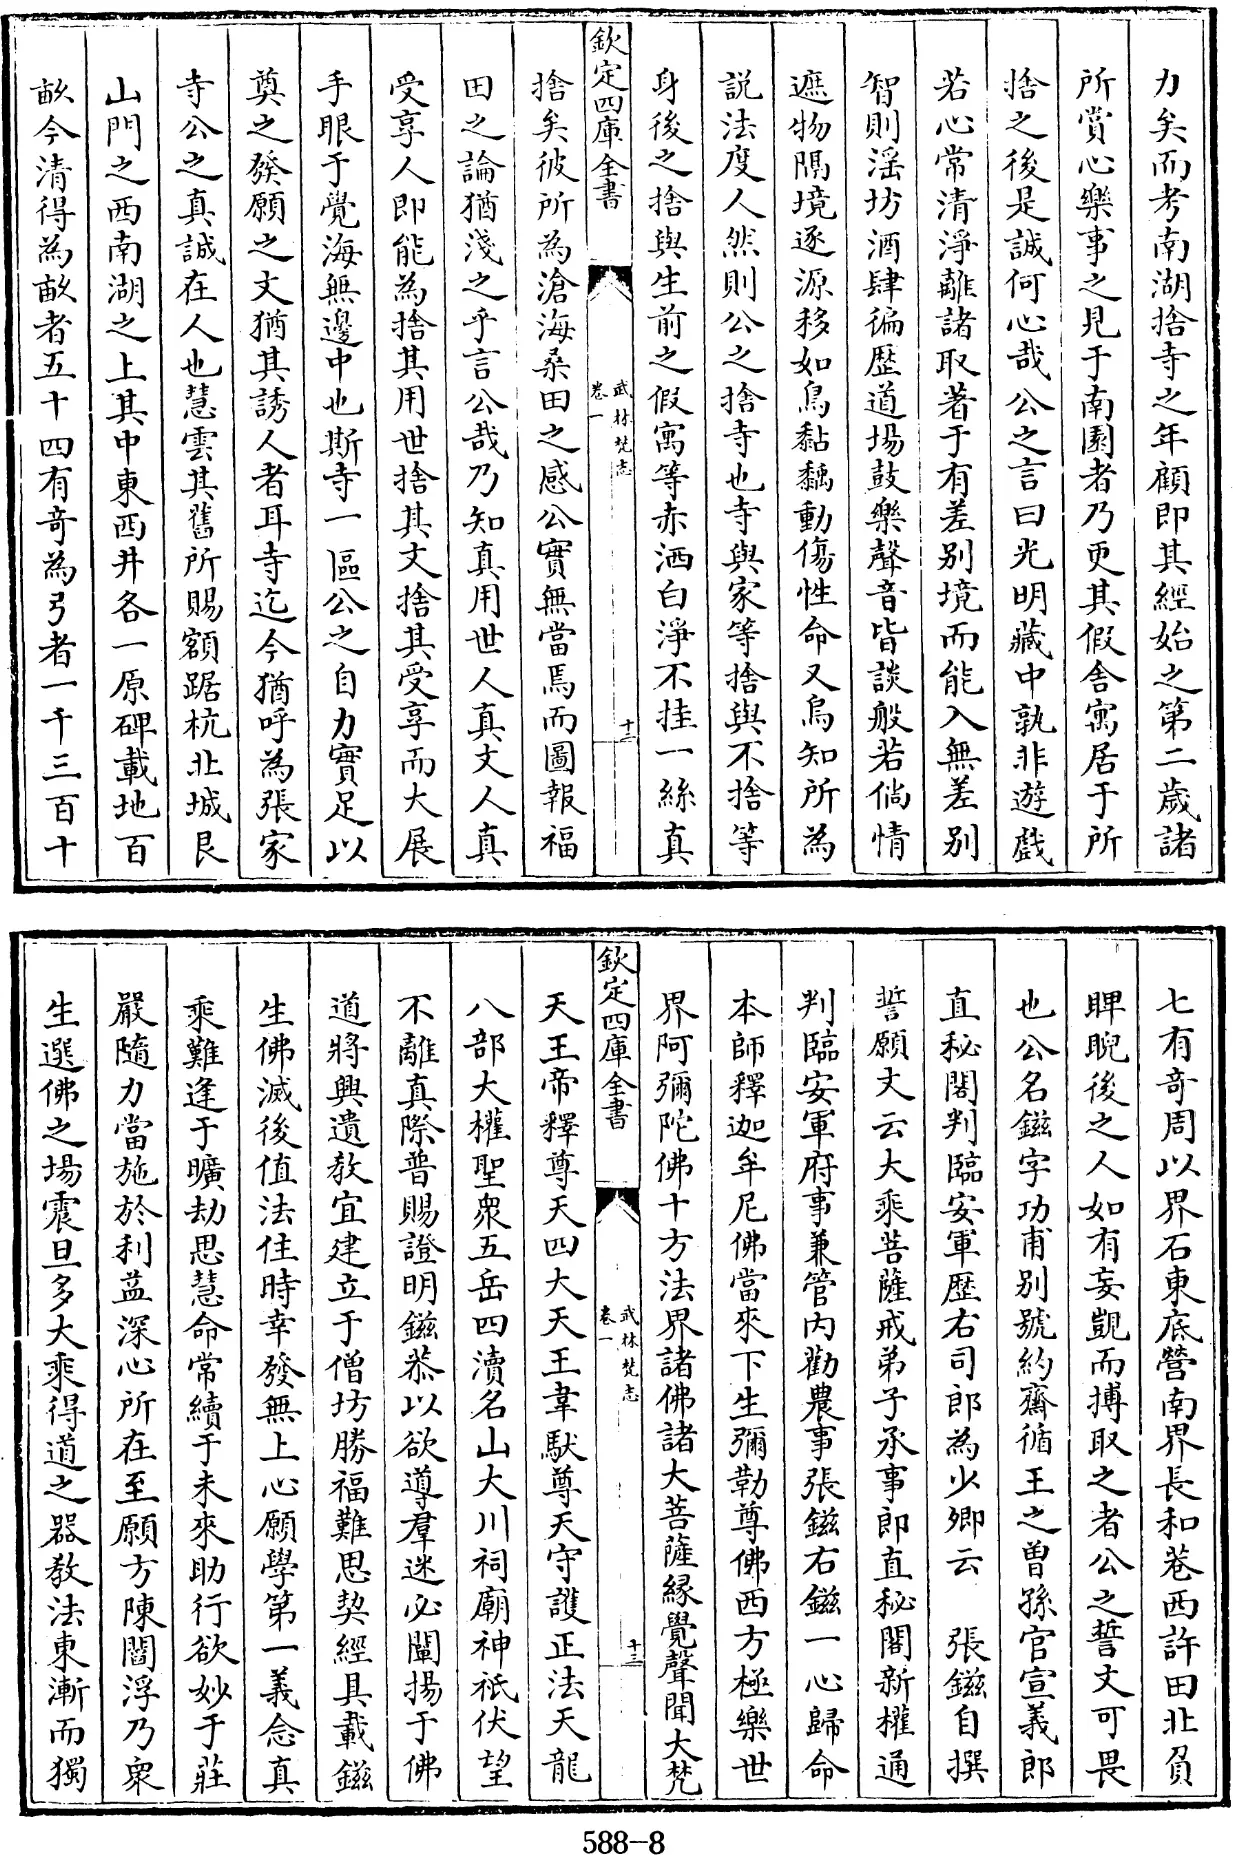 力矣而考南湖捨寺之年顧即其經始之第二歲諸
所賞心樂事之見于南園者乃更其假舍寓居于所
捨之後是誠何心哉公之言曰光明藏中孰非遊戲
若心常清淨離諸取著于有差别境而能入無差别
智則滛坊酒肆徧歷道場鼓樂聲音皆談般若倘情
遮物隔境逐源移如鳥黏黐動傷性命又烏知所為
説法度人然則公之捨寺也寺與家等捨與不捨等
身後之捨與生前之假寓等赤洒白淨不挂一絲真
欽定四庫全書
武林梵志
卷一
十二
捨矣彼所為滄海桑田之感公實無當焉而圖報福
田之論猶淺之乎言公哉乃知真用世人真文人真
受享人即能為捨其用世捨其文捨其受享而大展
手眼于覺海無邊中也斯寺一區公之自力實足以
奠之發願之文猶其誘人者耳寺迄今猶呼為張家
寺公之真誠在人也慧雲其舊所賜額踞杭北城艮
山門之西南湖之上其中東西井各一原碑載地百
畝今清得為畝者五十四有竒為弓者一千三百十
七有竒周以界石東底營南界長和巷西許田北負
睥睨後之人如有妄覬而摶取之者公之誓文可畏
也公名鎡字功甫别號約齋循王之曽孫官宣義郎
直秘閣判臨安軍歷右司郎為少卿云　張鎡自撰
誓願文云大乘菩薩戒弟子承事郎直秘閣新權通
判臨安軍府事兼管内勸農事張鎡右鎡一心歸命
本師釋迦牟尼佛當來下生彌勒尊佛西方極樂世
界阿彌陀佛十方法界諸佛諸大菩薩縁覺聲聞大梵
欽定四庫全書
武林梵志
卷一
十三
天王帝釋尊天四大天王韋馱尊天守護正法天龍
八部大權聖衆五岳四瀆名山大川祠廟神祇伏望
不離真際普賜證明鎡恭以欲導羣迷必闡揚于佛
道將興遺教宜建立于僧坊勝福難思契經具載鎡
生佛滅後值法住時幸發無上心願學第一義念真
乘難逢于曠劫思慧命常續于未來助行欲妙于莊
嚴隨力當施於利益深心所在至願方陳閻浮乃衆
生選佛之場震旦多大乘得道之器教法東漸而獨
588-8